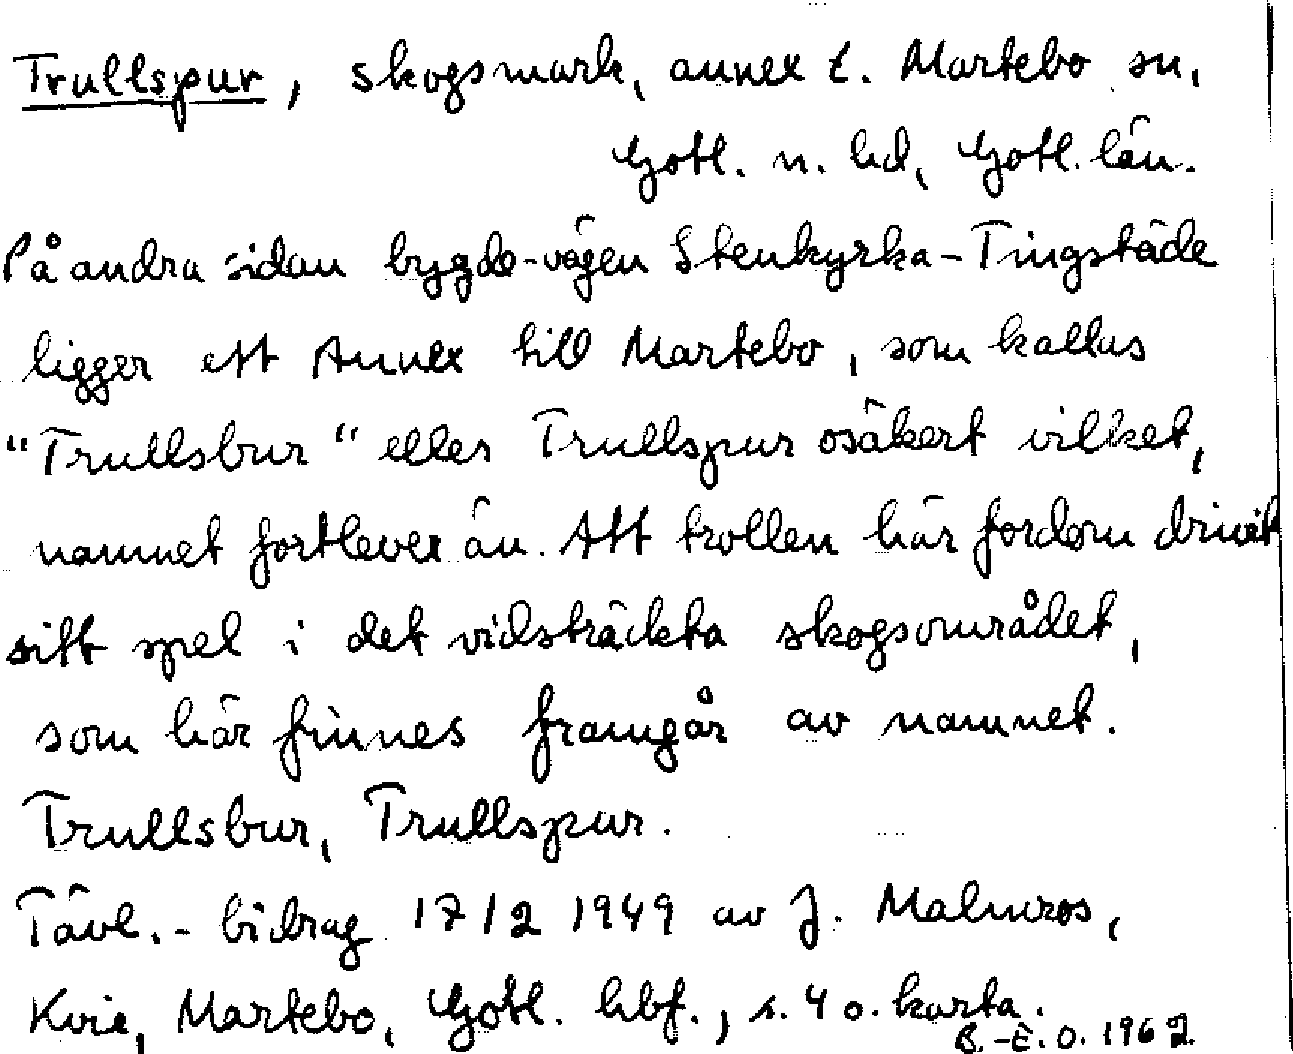 Trullspur, skogsmark, annex t. Martebo sn,
Gotl. n. hd, Gotl. län.
På andra sidan bygde-vägen Stenkyrka-Tingstäde
ligger ett Annex till Martebo, som kallas
"Trullsbur" eller Trullspur osäkert vilket,
namnet fortlever än. Att trollen här fordom drivit
sitt spel i det vidsträckta skogsområdet,
som här finnes framgår av namnet.
Trullsbur, Trullspur.
Tävl.-bidrag 17/2 1949 av J. Malmros,
Kvie, Martebo, Gotl. hbf., s. 4 o. karta.
B.-E.O. 1962.